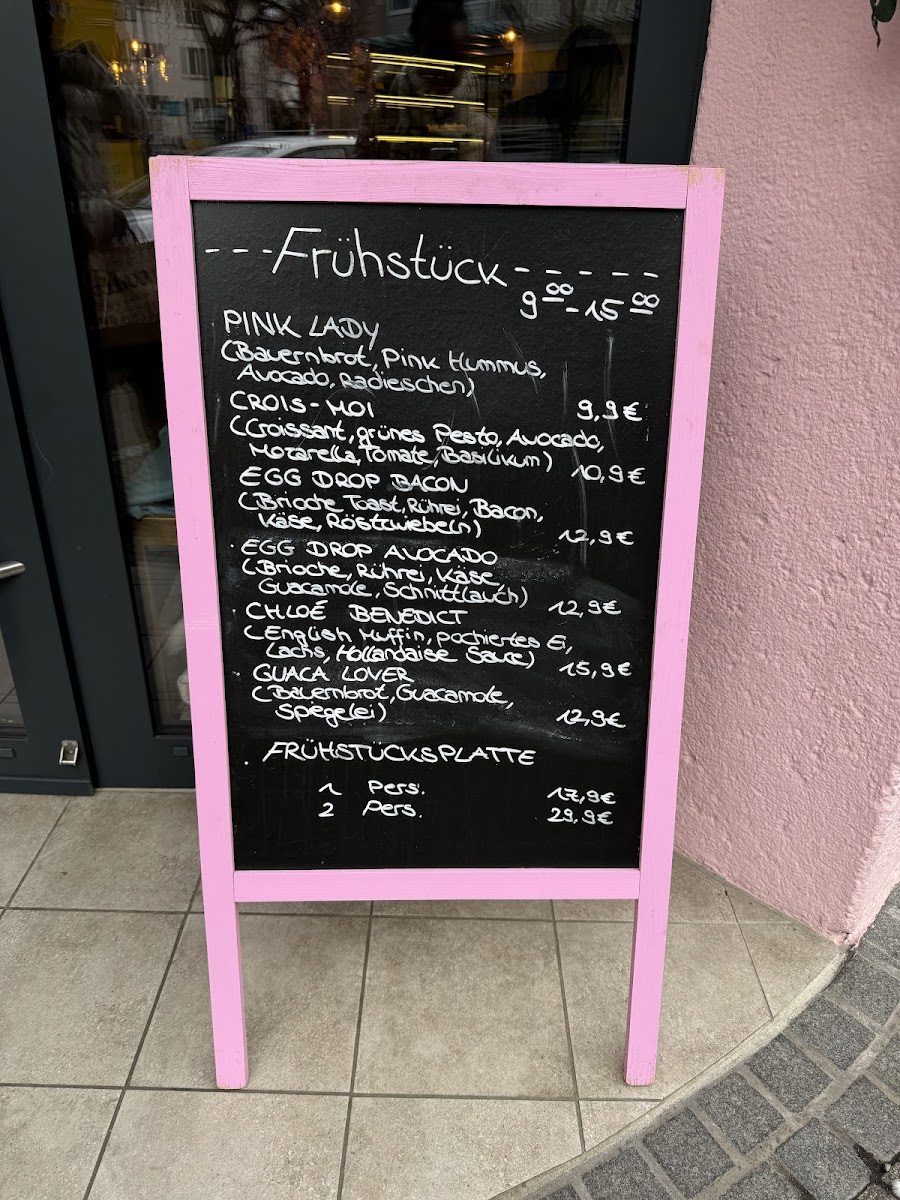 ---Frühstück-----
9⁰⁰-15⁰⁰
PINK LADY
(Bauernbrot, Pink Hummus,
Avocado, Radieschen)
CROIS-MOI 9,9€
(Croissant, grünes Pesto, Avocado,
Mozarella, Tomate, Basilikum) 10,9€
EGG DROP BACON
(Brioche Toast, Rührei, Bacon,
Käse, Röstzwiebeln) 12,9€
· EGG DROP AVOCADO
(Brioche, Rührei, Käse,
Guacamole, Schnittlauch) 12,9€
· CHLOÉ BENEDICT
(English Muffin, pochiertes Ei,
Lachs, Hollandaise Sauce) 15,9€
· GUACA LOVER
(Bauernbrot, Guacamole,
Spiegelei) 12,9€
· FRÜHSTÜCKSPLATTE
1 Pers. 17,9€
2 Pers. 29,9€